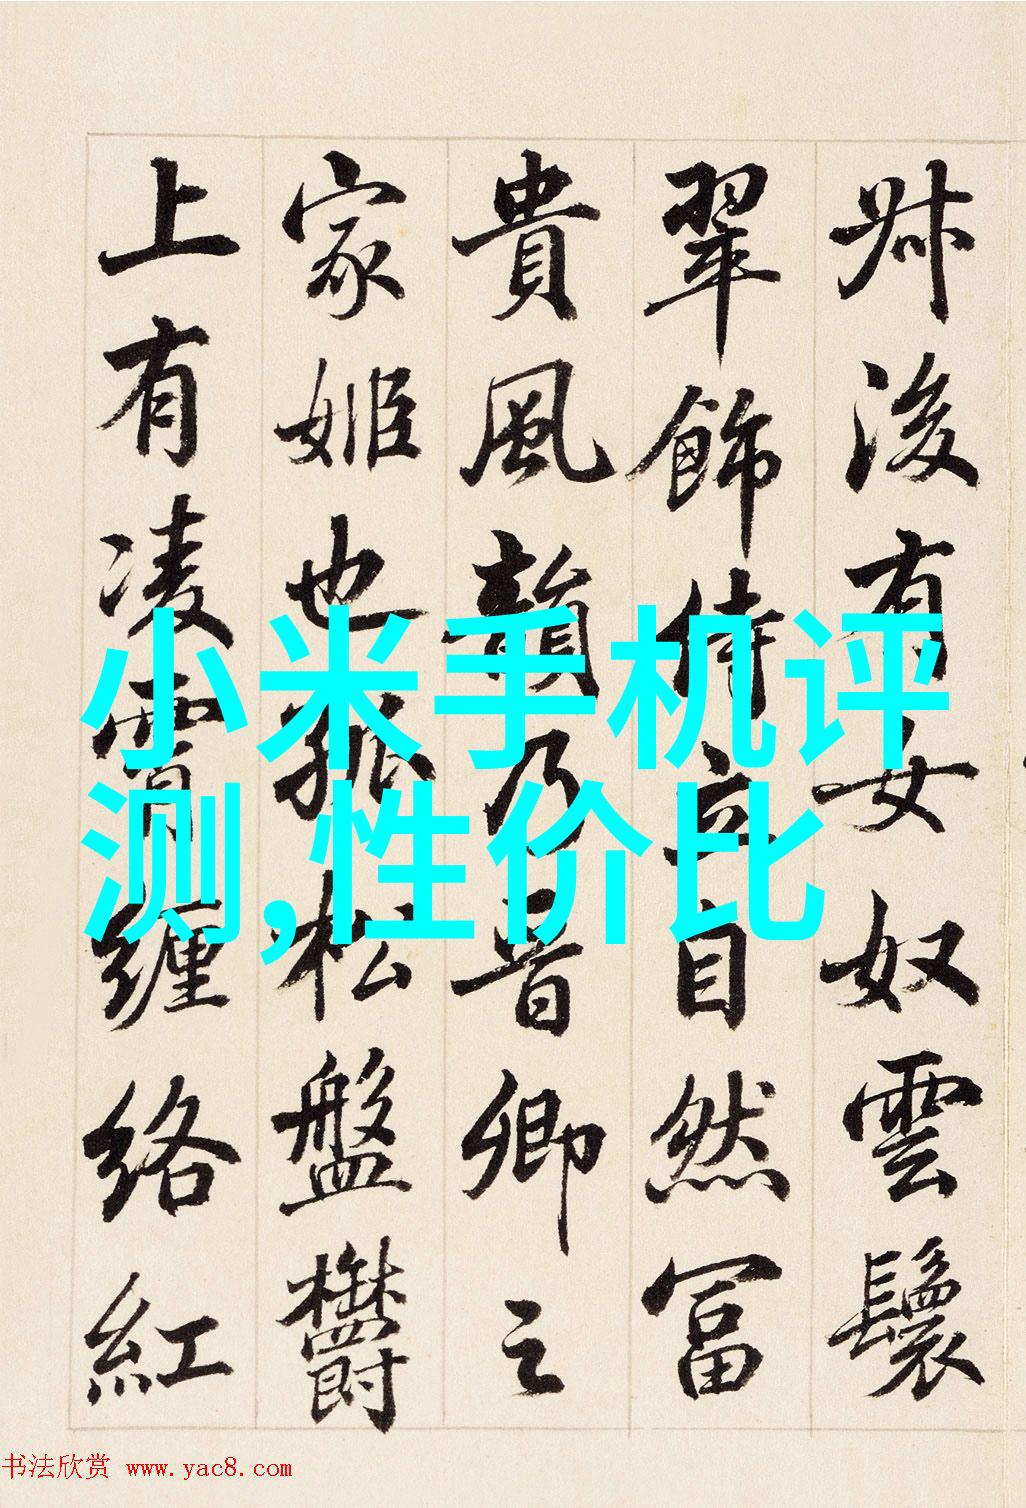 肘後有女奴雲鬟
翠飾侍立自然富
貴風韻乃晉卿之
家姬也孤松盤鬱
上有凌霄纏絡紅
小米手机评
测,性价比
书法欣赏 www.yac8.com